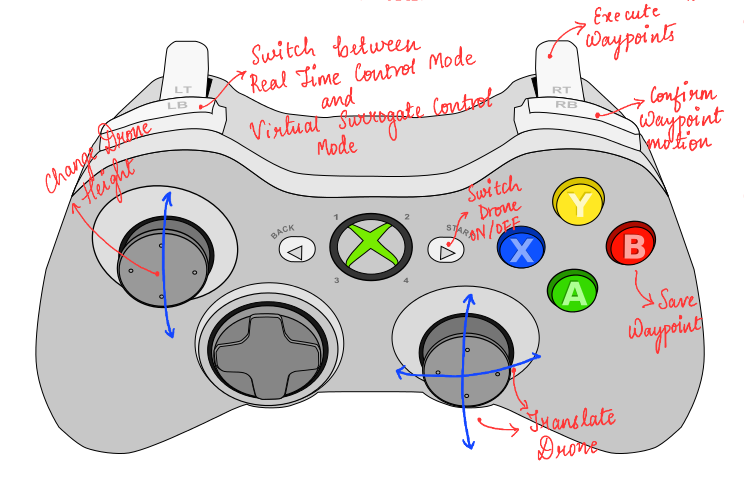 Execute
Waypoints
Switch between
Real Time Control Mode
and
Virtual Surrogate Control
Mode
LT
LB
RT
RB
Confirm
Waypoint
motion
Change Drone
Height
Switch
Drone
ON/OFF
BACK
START
1
2
3
4
Y
X
B
A
Save
Waypoint
Translate
Drone